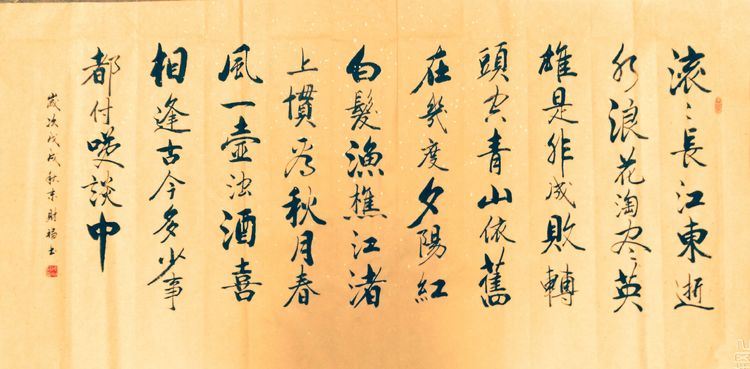 滚〻長江東逝
水浪花淘尽英
雄是非成敗轉
頭空青山依舊
在幾度夕陽紅
白髮漁樵江渚
上慣看秋月春
風一壺浊酒喜
相逢古今多少事
都付笑談中
歲次戊戌秋